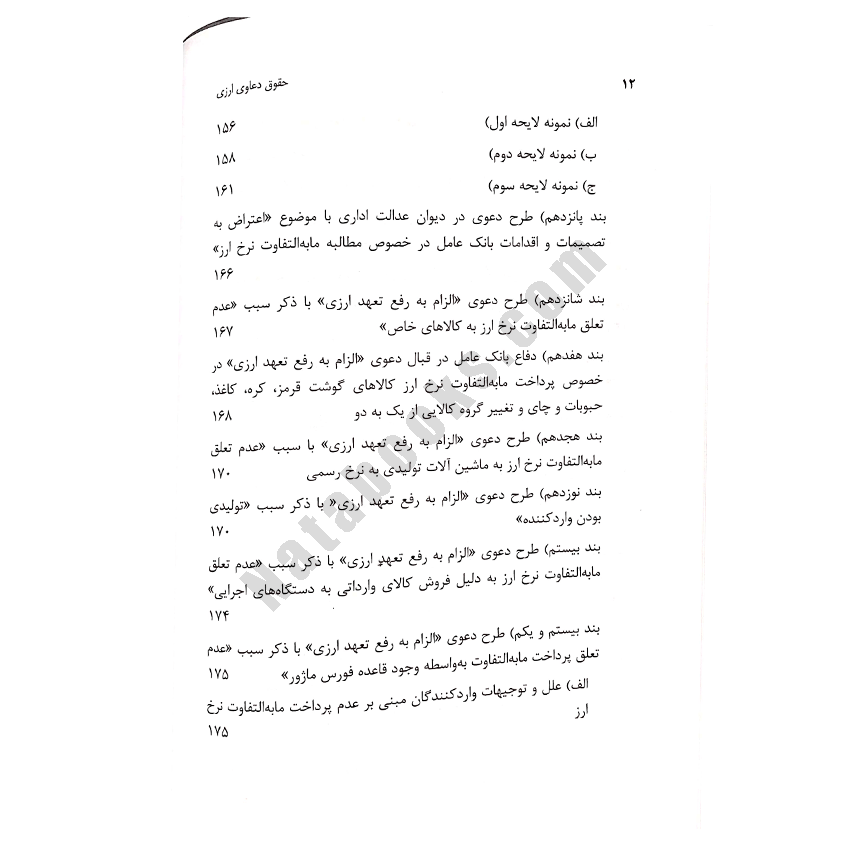 ۱۲
حقوق دعاوی ارزی
الف) نمونه لایحه اول)
۱۵۶
ب) نمونه لایحه دوم)
۱۵۸
ج) نمونه لایحه سوم)
۱۶۱
بند پانزدهم) طرح دعوی در دیوان عدالت اداری با موضوع «اعتراض به
تصمیمات و اقدامات بانک عامل در خصوص مطالبه مابه‌التفاوت نرخ ارز»
۱۶۶
بند شانزدهم) طرح دعوی «الزام به رفع تعهد ارزی» با ذکر سبب «عدم
تعلق مابه‌التفاوت نرخ ارز به کالاهای خاص»
۱۶۷
بند هفدهم) دفاع بانک عامل در قبال دعوی «الزام به رفع تعهد ارزی» در
خصوص پرداخت مابه‌التفاوت نرخ ارز کالاهای گوشت قرمز، کره، کاغذ،
حبوبات و چای و تغییر گروه کالایی از یک به دو
۱۶۸
بند هجدهم) طرح دعوی «الزام به رفع تعهد ارزی» با سبب «عدم تعلق
مابه‌التفاوت نرخ ارز به ماشین آلات تولیدی به نرخ رسمی
۱۷۰
بند نوزدهم) طرح دعوی «الزام به رفع تعهد ارزی« با ذکر سبب «تولیدی
بودن واردکننده»
۱۷۰
بند بیستم) طرح دعوی «الزام به رفع تعهد ارزی» با ذکر سبب «عدم تعلق
مابه‌التفاوت نرخ ارز به دلیل فروش کالای وارداتی به دستگاه‌های اجرایی»
۱۷۴
بند بیستم و یکم) طرح دعوی «الزام به رفع تعهد ارزی» با ذکر سبب «عدم
تعلق پرداخت مابه‌التفاوت به‌واسطه وجود قاعده فورس ماژور»
۱۷۵
الف) علل و توجیهات واردکنندگان مبنی بر عدم پرداخت مابه‌التفاوت نرخ
ارز
۱۷۵
Natabooks.com